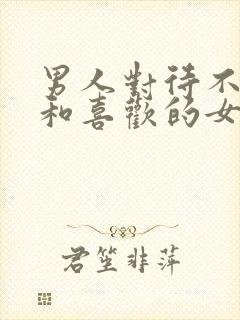 男人對待不
和喜歡的女
君笙非萍